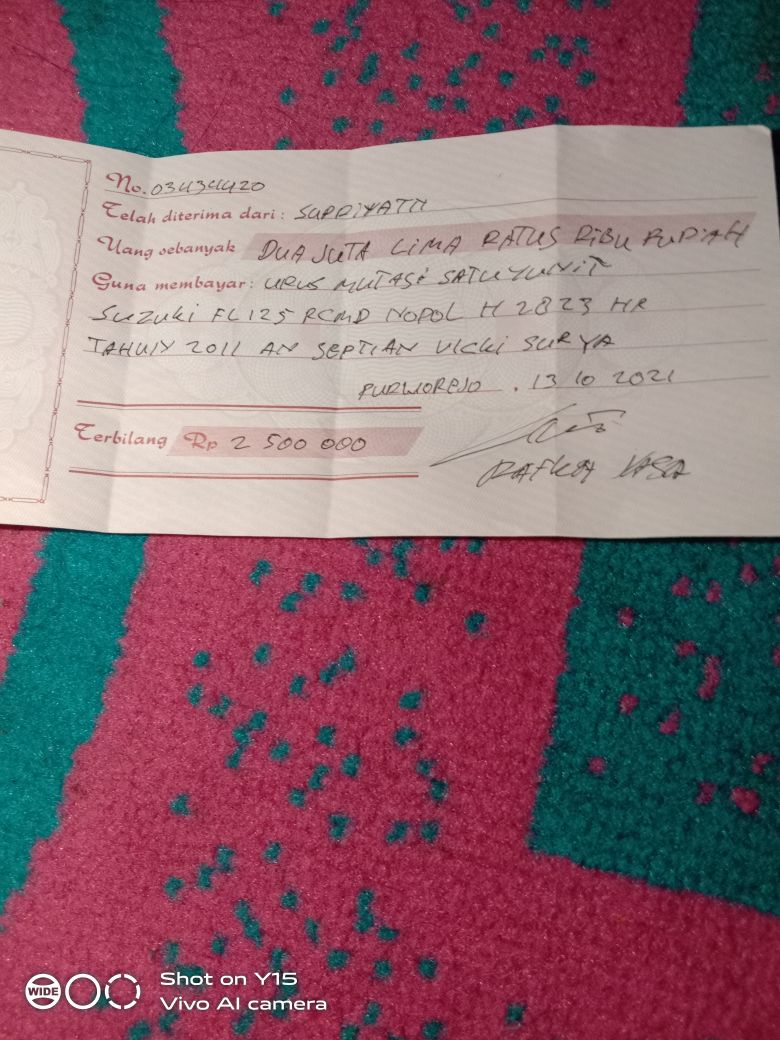 No. 03434420
Telah diterima dari: SUPRIYATH
Uang sebanyak DUA JUTA LIMA RATUS RIBU RUPIAH
Guna membayar: URUS MUTASI SATU YUNIT
SUZUKI FL125 RCMD NOPOL H 2823 HR
TAHUN 2011 AN SEPTIAN VICKI SURYA
PURWOREJO, 13 10 2021
Terbilang Rp 2 500 000
RAFKA
WIDE
Shot on Y15
Vivo AI camera